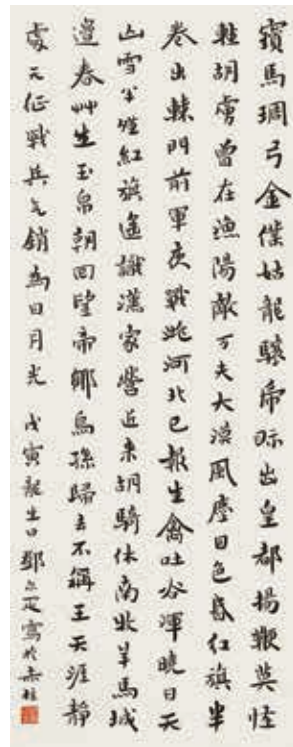 寶馬琱弓金僕姑龍驤虎眎出皇都揚鞭莫怪
輕胡虜曾在漁陽敵万夫大漠風塵日色昏红旗半
卷出轅門前軍夜戰洮河北已報生禽吐谷渾曉日天
山雪半晴紅旗遙識漢家營近来胡騎休南牧羊馬城
邊春艸生玉帛朝回望帝鄉烏孫歸去不稱王天涯靜
處无征戰兵气銷為日月光 戊寅龍生日鄧寫於